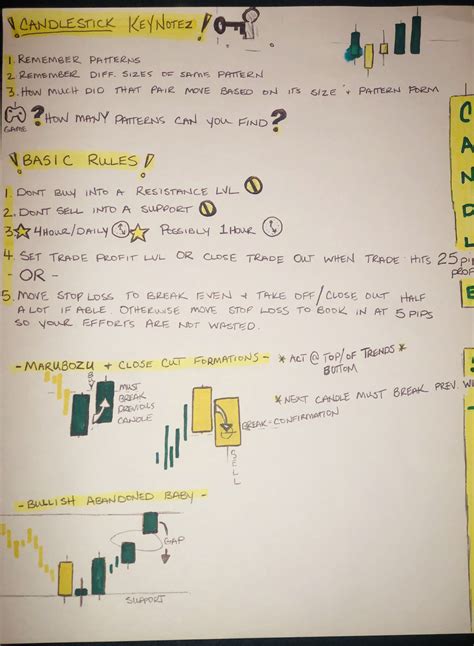 ! CANDLESTICK KEYNOTEZ !
1. REMEMBER PATTERNS
2. REMEMBER DIFF. SIZES OF SAME PATTERN
3. HOW MUCH DID THAT PAIR MOVE BASED ON ITS SIZE & PATTERN FORM
GAME ? HOW MANY PATTERNS CAN YOU FIND?
! BASIC RULES !
1. DONT BUY INTO A RESISTANCE LVL
2. DONT SELL INTO A SUPPORT
3. 4HOUR/DAILY POSSIBLY 1 HOUR
4. SET TRADE PROFIT LVL OR CLOSE TRADE OUT WHEN TRADE HITS 25 PIP
PROF
- OR -
5. MOVE STOP LOSS TO BREAK EVEN & TAKE OFF/CLOSE OUT HALF
A LOT IF ABLE. OTHERWISE MOVE STOP LOSS TO BOOK IN AT 5 PIPS
SO YOUR EFFORTS ARE NOT WASTED.
- MARUBOZU & CLOSE CUT FORMATIONS -
* ACT @ TOP/ OF TRENDS *
BOTTOM
MUST
BREAK
PREVIOUS
CANDLE
* NEXT CANDLE MUST BREAK PREV. W
BREAK=CONFIRMATION
SELL
- BULLISH ABANDONED BABY -
GAP
SUPPORT
CANDL